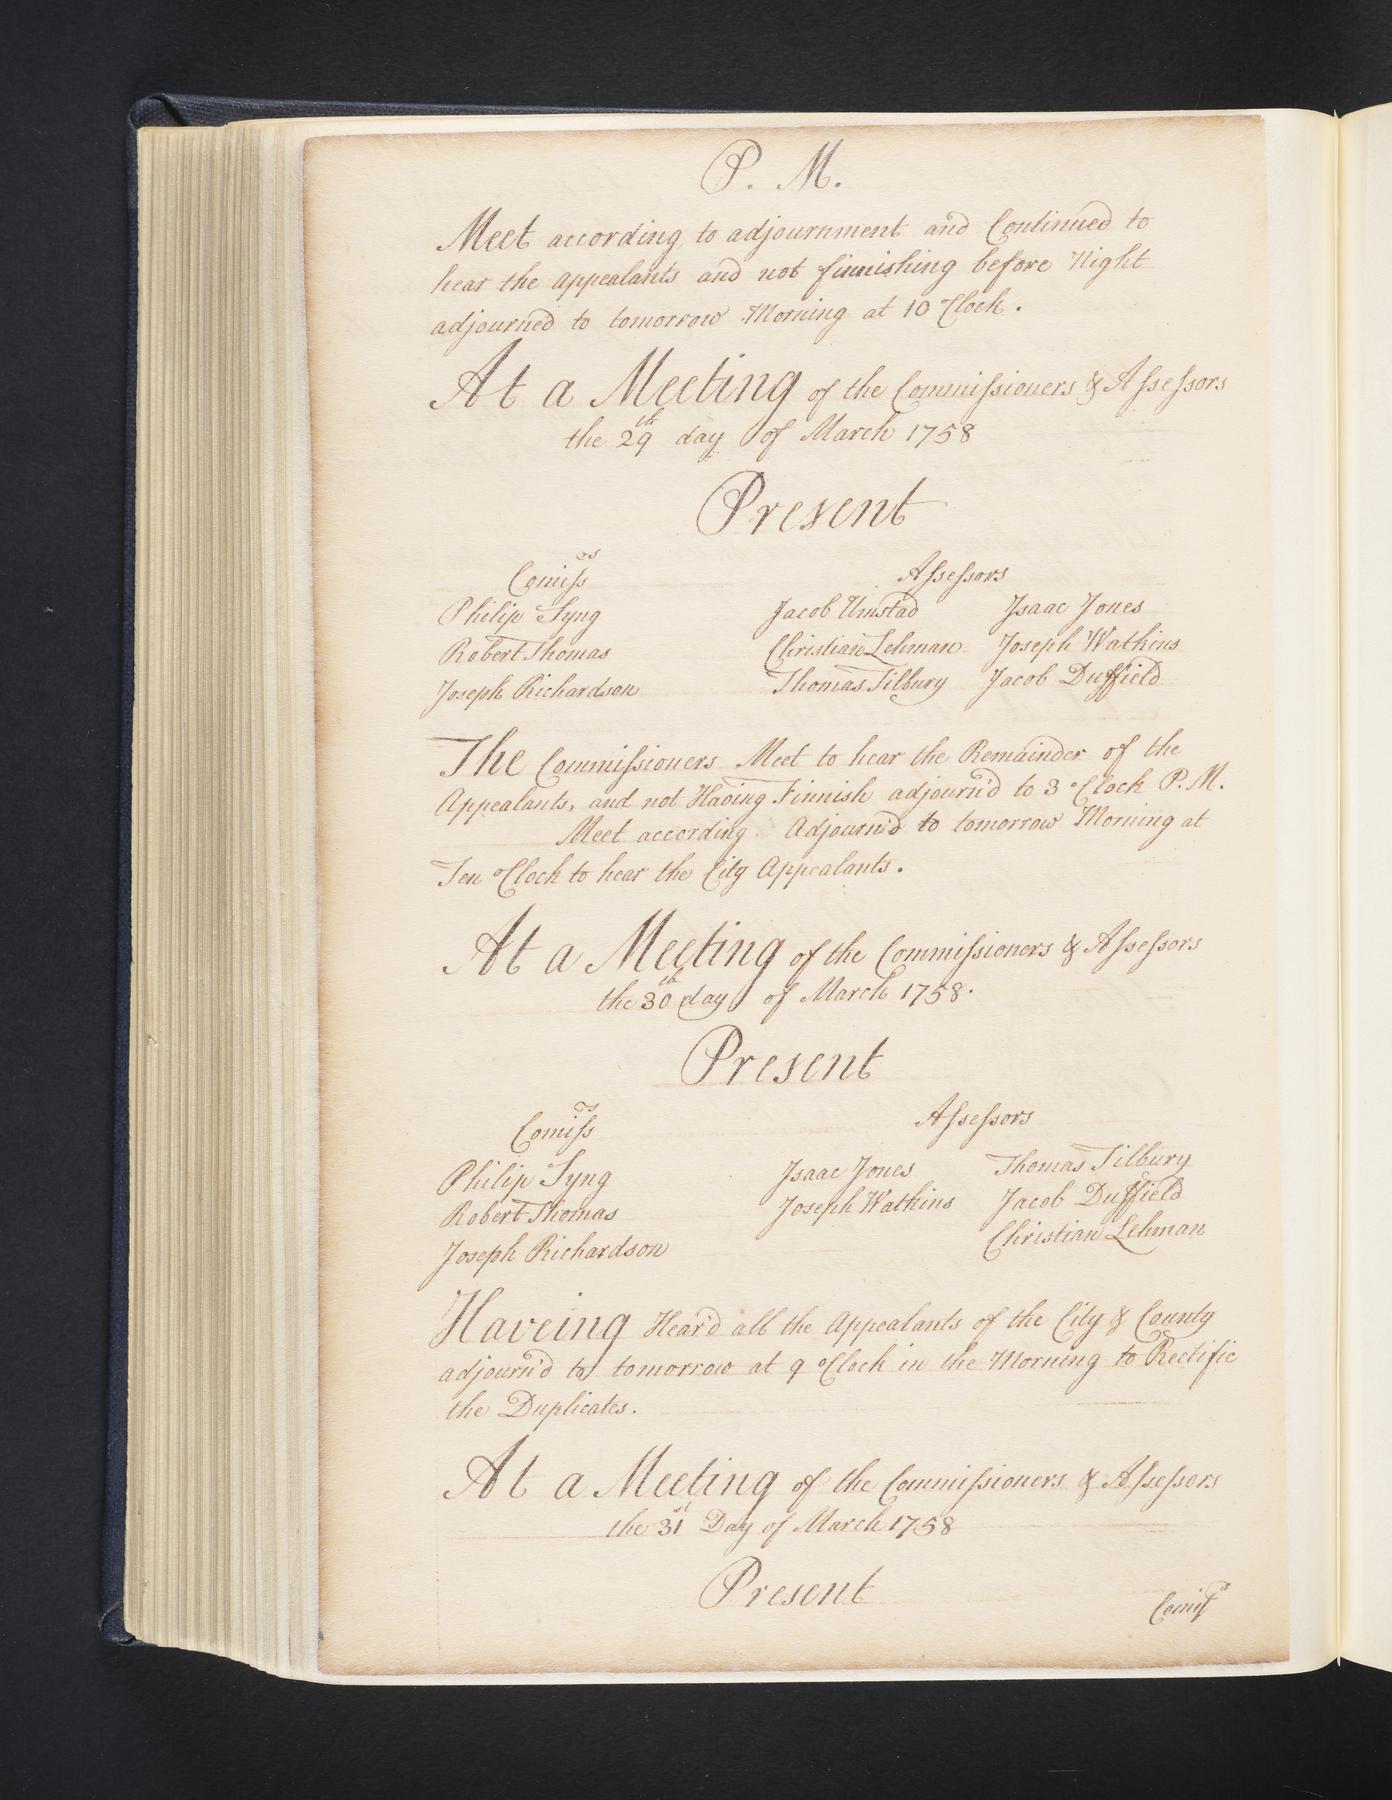 P. M.
Meet according to adjournment and Continued to
hear the Appealants and not finnishing before Night
adjourned to tomorrow Morning at 10 oClock.
At a Meeting of the Commissioners & Assessors
the 29th day of March 1758
Present
Comissrs Assessors
Philip Syng Jacob Umstad Isaac Jones
Robert Thomas Christian Lehman Joseph Watkins
Joseph Richardson Thomas Tilbury Jacob Duffield
The Commissioners Meet to hear the Remainder of the
Appealants, and not Having Finnish adjourn'd to 3 oClock P. M.
Meet according Adjourn'd to tomorrow Morning at
Ten oClock to hear the City Appealants.
At a Meeting of the Commissioners & Assessors
the 30th day of March 1758.
Present
Comissrs Assessors
Philip Syng Isaac Jones Thomas Tilbury
Robert Thomas Joseph Watkins Jacob Duffield
Joseph Richardson Christian Lehman
Haveing Hear'd all the Appealants of the City & County
adjourn'd to tomorrow at 9 oClock in the Morning to Rectifie
the Duplicates.
At a Meeting of the Commissioners & Assessors
the 31st Day of March 1758
Present
Comisrs